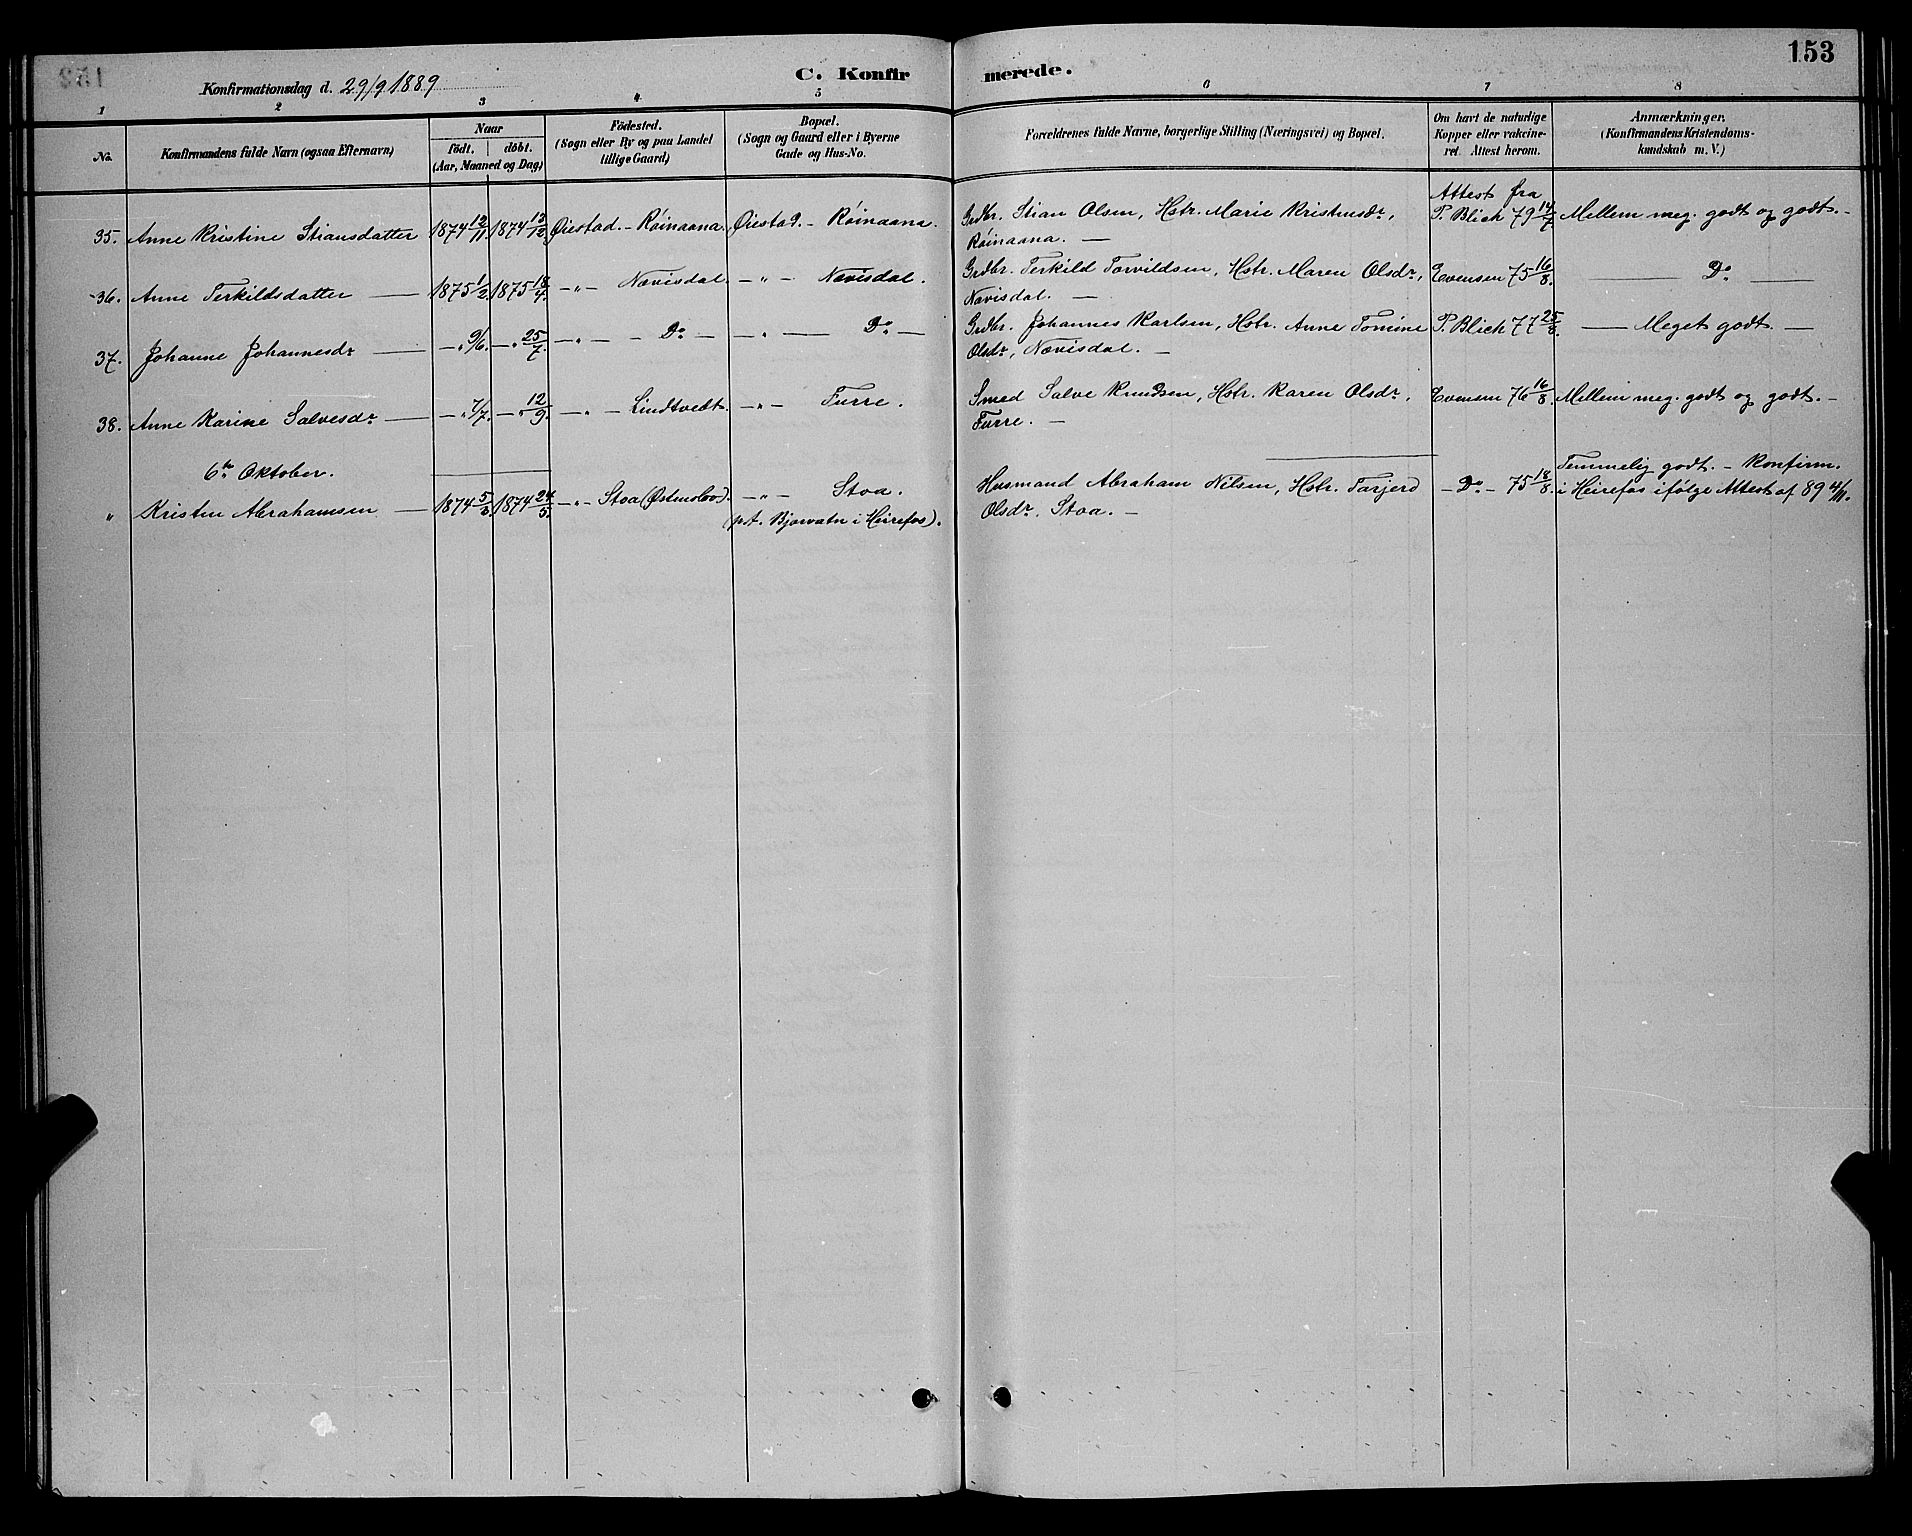 153
Konfirmationsdag d. 29/9 1889
C. Konfirmerede.
1 2 3 4 5 6 7 8
No.
Konfirmandens fulde Navn (ogsaa Efternavn)
Naar
födt. döbt.
(Aar, Maaned og Dag)
Födested.
(Sogn eller By og paa Landet
tillige Gaard)
Bopæl.
(Sogn og Gaard eller i Byerne
Gade og Hus-No.
Forældrenes fulde Navne, borgerlige Stilling (Næringsvei) og Bopæl.
Om havt de naturlige
Kopper eller vakcine-
ret. Attest herom.
Anmærkninger.
(Konfirmandens Kristendoms-
kundskab m. V.)
35. Anne Kristine Stiansdatter 1874 12/11. 1874 13/12. Øiestad. - Röinaana. Øiestad. - Röinaana. Grdbr. Stian Olsen, Hstr. Marie Kristensdr, Attest fra
Röinaana. — P. Blich 79 14/7. Mellem meg. godt og godt. -
36. Anne Terkildsdatter — 1875 1/2. 1875 18/4. - " - Nævisdal. - " - Nævisdal. Grdbr. Terkild Torvildsen, Hstr. Maren Olsdr, Evensen 75 16/8. — Do —
Nævisdal. —
37. Johanne Johannesdr — - " 9/6. - " 25/7. - " - - Do - - " — Do — Grdbr. Johannes Karlsen, Hstr. Anne Tomine P. Blich 77 25/8. — Meget godt. —
Olsdr, Nævisdal. -
38. Anne Karine Salvesdr — - " 7/7. - " 12/9. - " - Lindtvedt. - " - Furre. Smed Salve Knudsen, Hstr. Karen Olsdr, Evensen 76 16/8. Mellem meg. godt og godt. -
Furre. -
6te Oktober.
" Kristen Abrahamsen — 1874 5/3. 1874 24/5. - " - Stoa (Østmolav). - " - Stoa. Husmand Abraham Nilsen, Hstr. Tarjerd - Do - 75 18/8. Temmelig godt. - Konfirm.
(p.t. Bjorvatn i Heirefos). Olsdr, Stoa. - i Heirefos ifølge Attest af 89 4/11.